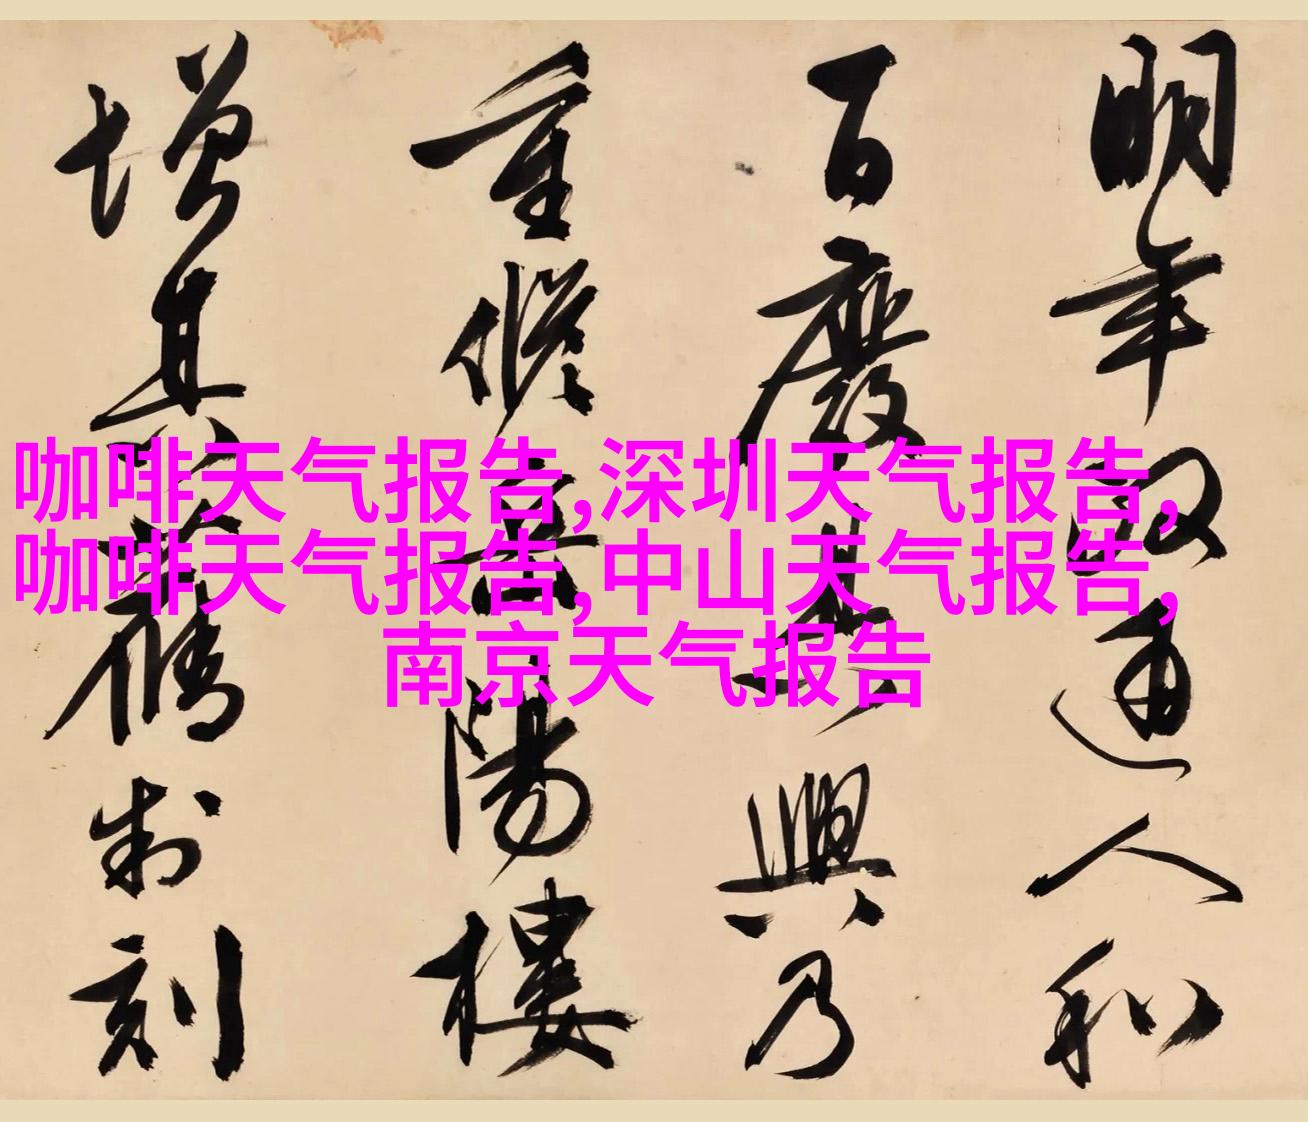 咖啡天气报告,深圳天气报告,
咖啡天气报告,中山天气报告,
南京天气报告
明年政通人和
百廢具興乃
重脩岳陽樓
增其舊制刻